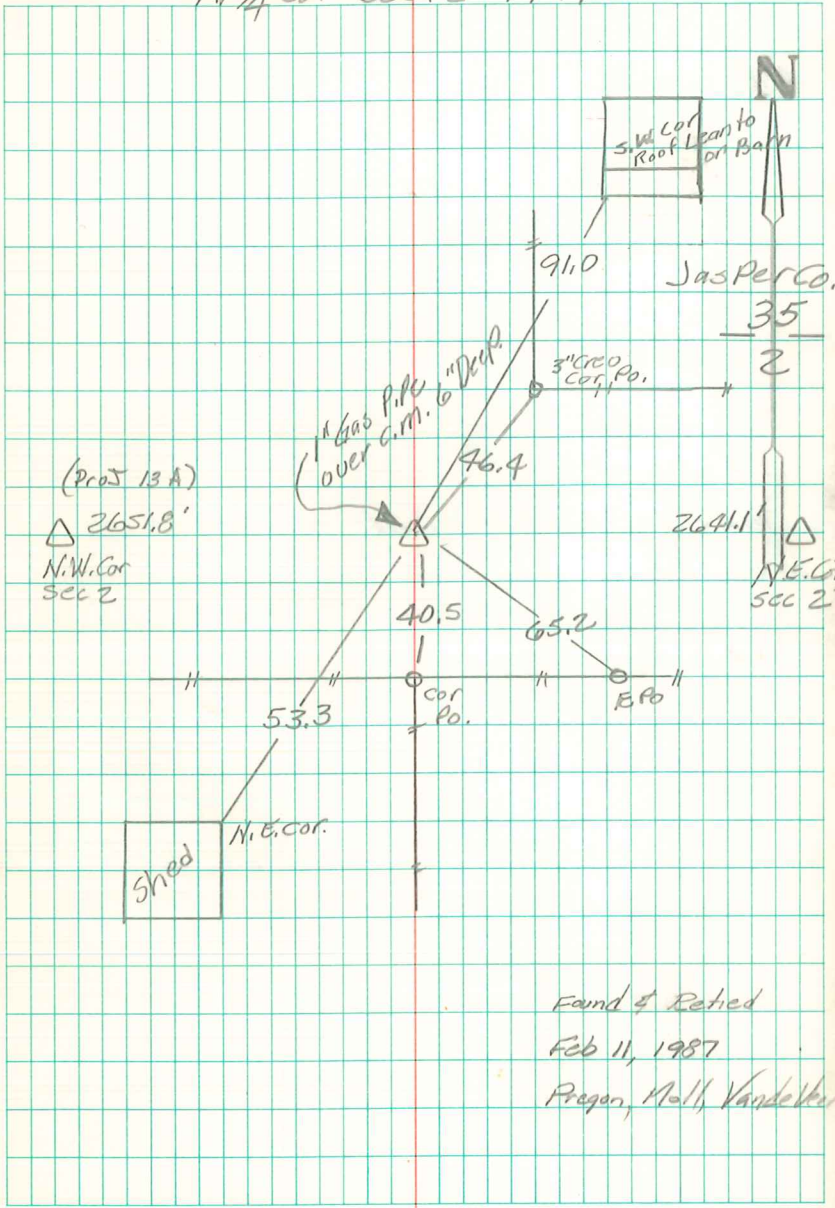 N
S.W. Cor
Roof Lean to
on Barn
91.0
Jasper Co.
35
2
3" Creo
Cor. Po.
1" Gas P.
over C.M. 6" Deep.
46.4
(Proj 13 A)
2651.8'
N.W. Cor
Sec 2
2641.1'
N.E. Co
Sec 2
40.5
65.2
Cor
Po.
E Po
53.3
N.E. Cor.
Shed
Found & Retied
Feb 11, 1987
Pregon, Noll, VandeVeer